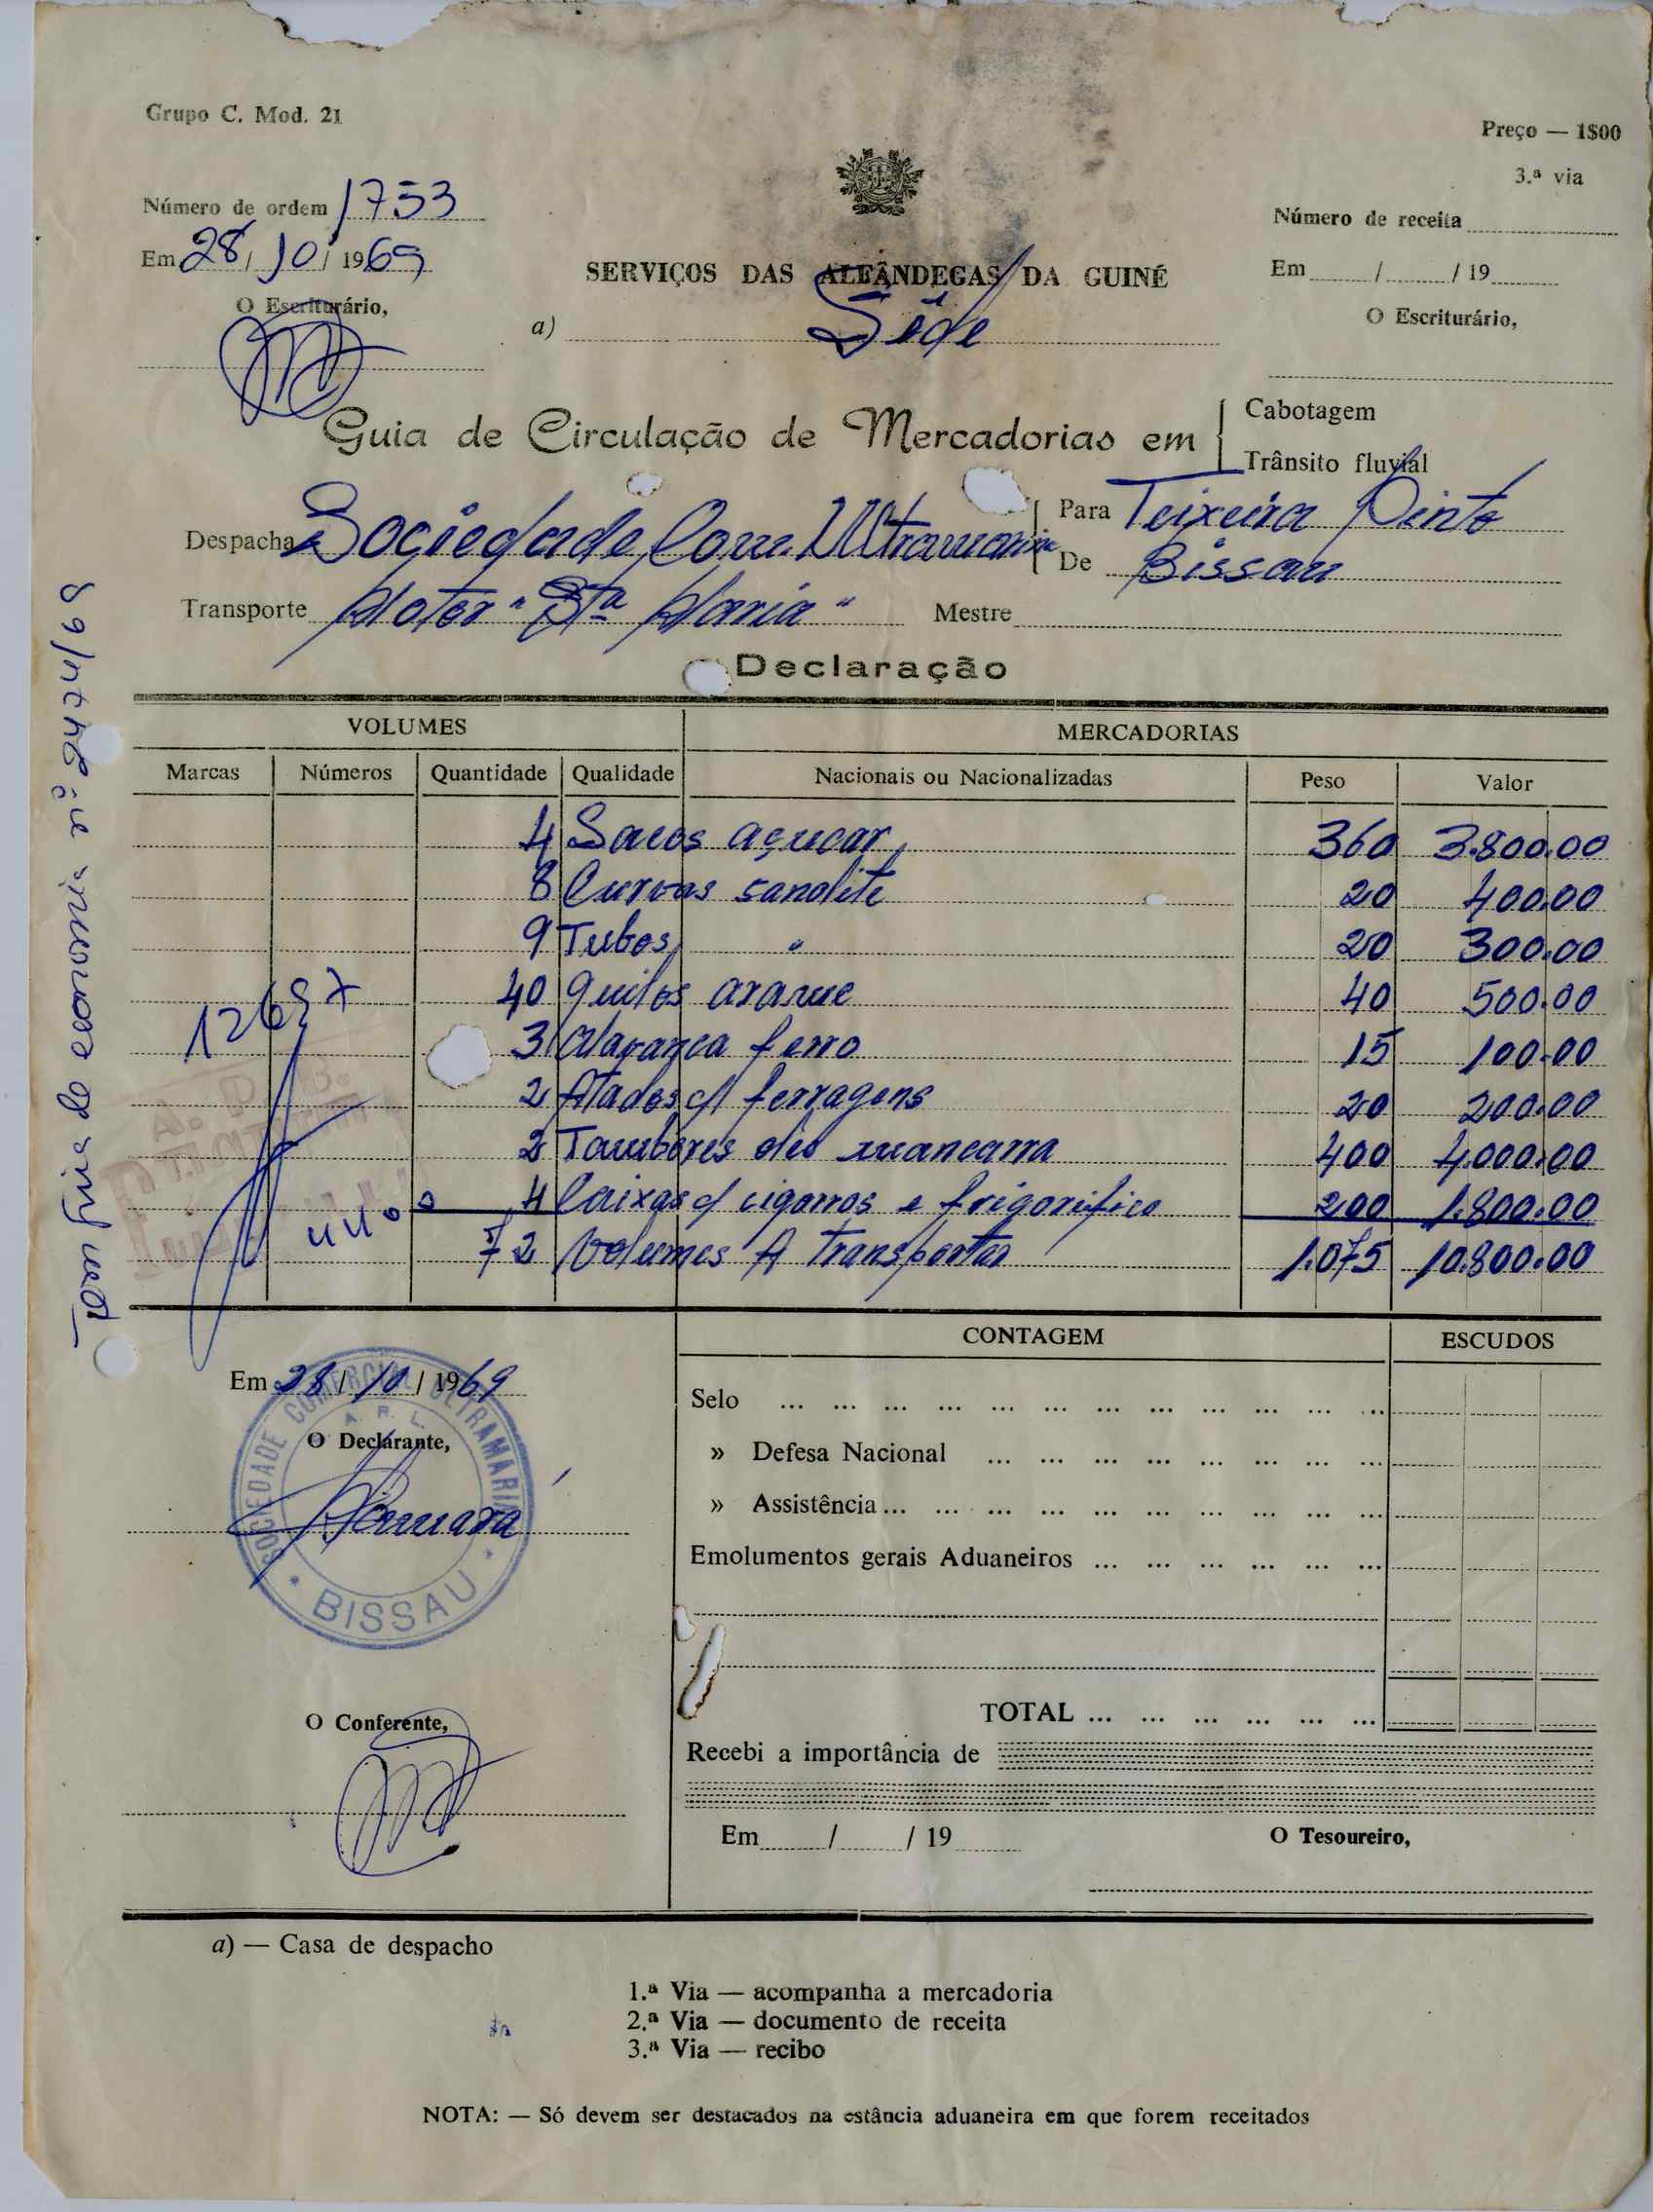 Grupo C. Mod. 21
Preço — 1$00
3.ª via
Número de ordem 1753
Em 28/10/1969
O Escriturário,
SERVIÇOS DAS ALFÂNDEGAS DA GUINÉ
a) Séde
Número de receita
Em / / 19
O Escriturário,
Guia de Circulação de Mercadorias em
Cabotagem
Trânsito fluvial
Despacha Sociedade Com. Ultramarina
Para Teixeira Pinto
De Bissau
Transporte Motor "Stª Maria"
Mestre
Declaração
VOLUMES MERCADORIAS
Marcas Números Quantidade Qualidade Nacionais ou Nacionalizadas Peso Valor
4 Sacos açucar 360 3.800.00
8 Curvas sanolite 20 400.00
9 Tubos " 20 300.00
40 quilos arame 40 500.00
3 ferro 15 100.00
2 Atados c/ ferragens 20 200.00
2 Tambores oleo mancarra 400 4.000.00
4 Caixas c/ cigarros e frigorifico 200 1.800.00
72 Volumes A transportar 1.075 10.800.00
12697
Em 28/10/1969
O Declarante,
SOCIEDADE COMERCIAL ULTRAMARINA
A. R. L.
BISSAU
O Conferente,
CONTAGEM ESCUDOS
Selo ... ... ... ... ... ... ... ... ... ... ... ...
» Defesa Nacional ... ... ... ... ... ... ... ...
» Assistência ... ... ... ... ... ... ... ... ... ...
Emolumentos gerais Aduaneiros ... ... ... ... ... ...
TOTAL ... ... ... ... ... ...
Recebi a importância de
Em / / 19
O Tesoureiro,
a) — Casa de despacho
1.ª Via — acompanha a mercadoria
2.ª Via — documento de receita
3.ª Via — recibo
NOTA: — Só devem ser destacados na estância aduaneira em que forem receitados